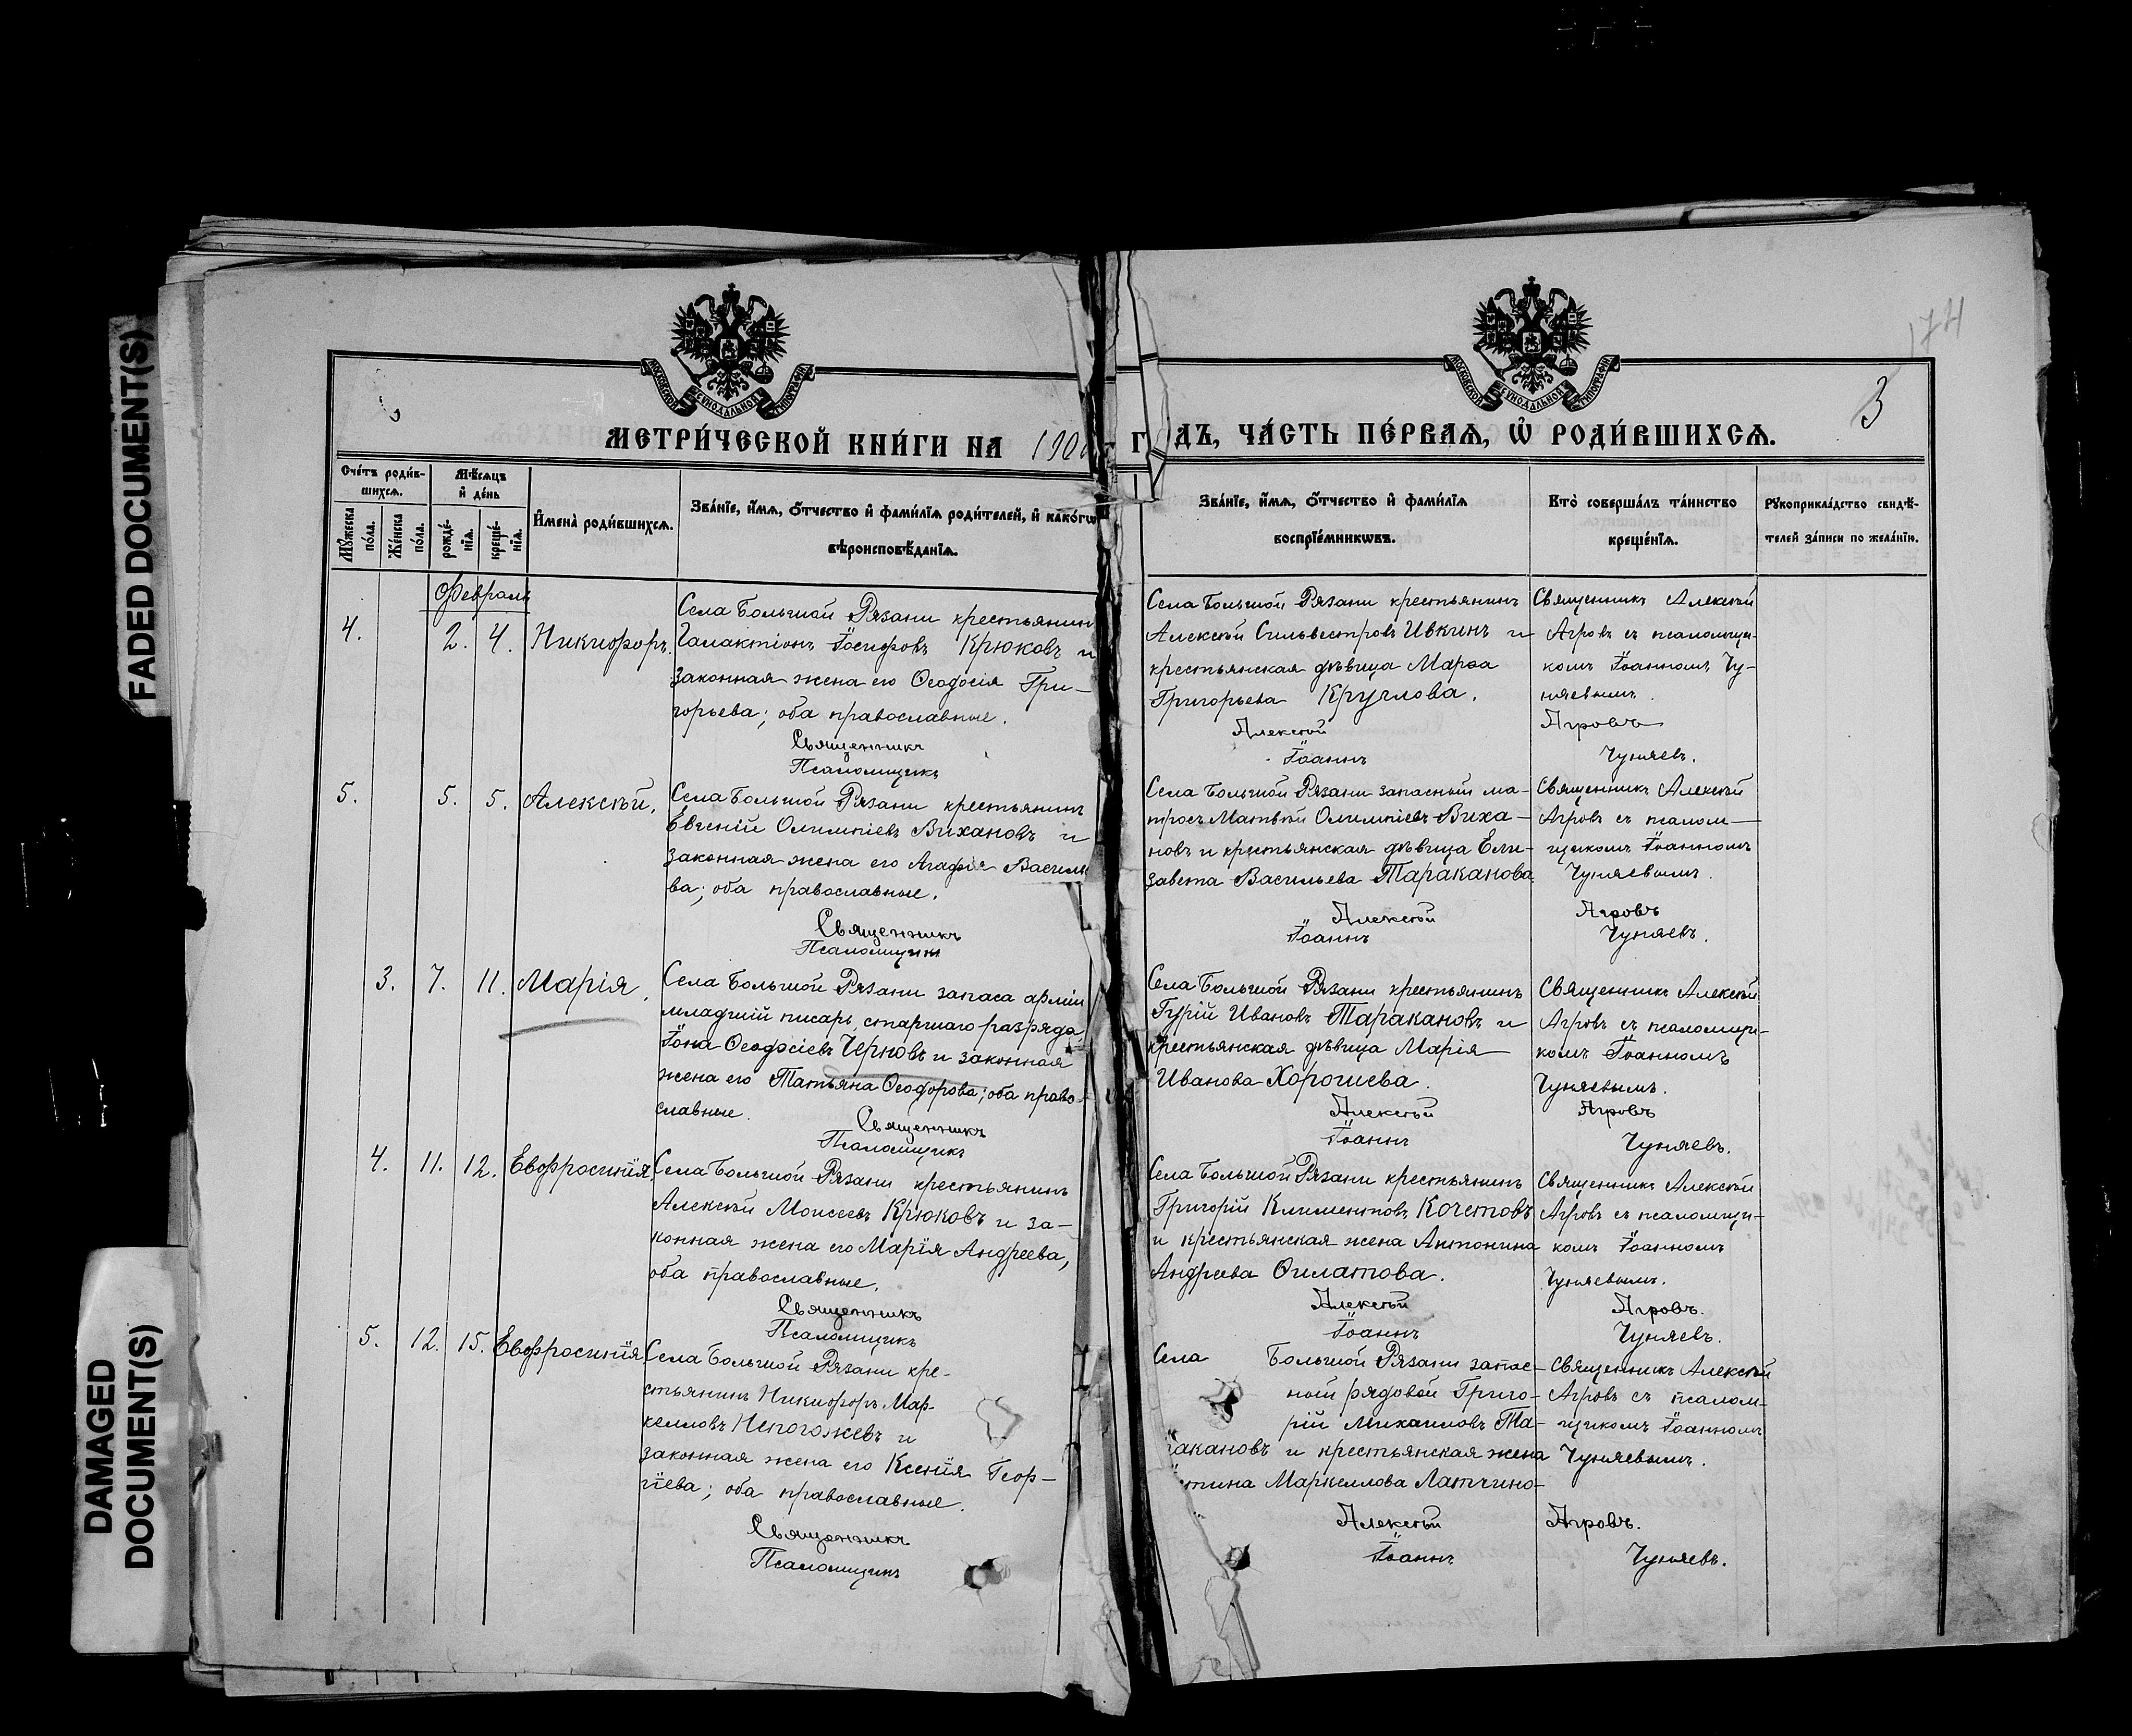 FADED DOCUMENT(S)
DAMAGED
DOCUMENT(S)
174
3
МОСКОВСКОЙ СѴНОДАЛЬНОЙ ТИПОГРАФІИ
МОСКОВСКОЙ СѴНОДАЛЬНОЙ ТИПОГРАФІИ
МЕТРИ́ЧЕСКОЙ КНИ́ГИ НА 190
Г ДЪ, ЧА́СТЬ ПЕ́РВАѦ, Ѡ҆ РОДИ́ВШИХСѦ.
Сче́тъ роди́в-
шихсѧ.
Мꙋ́жеска по́ла.
Же́нска по́ла.
Мѣ́сѧцъ
и҆ де́нь
рожде́-
нїѧ.
креще́-
нїѧ.
И҆мена̀ роди́вшихсѧ.
Зва́нїе, и҆́мѧ, ѻ҆́тчество и҆ фами́лїѧ роди́телей, и҆ како́гѡ
вѣроисповѣ́данїѧ.
Зва́нїе, и҆́мѧ, ѻ҆́тчество и҆ фами́лїѧ
воспрїе́мникѡвъ.
Кто̀ соверша́лъ та́инство
креще́нїѧ.
Рꙋкоприкла́дство свидѣ́-
телей за́писи по жела́нїю.
Февраль
4. 2. 4. Никифоръ.
Села Большой Рязани крестьянин
Галактіонъ Іосифовъ Крюковъ и
законная жена его Ѳеодосія Гри-
горьева; оба православные.
Священникъ
Псаломщикъ
Села Большой Рязани крестьянинъ
Алексѣй Сильвестровъ Ивкинъ и
крестьянская дѣвица Марѳа
Григорьева Круглова.
Алексѣй
Іоаннъ
Священникъ Алексѣй
Агровъ съ псаломщи-
комъ Іоанномъ Чу-
няевымъ.
Агровъ
Чуняевъ.
5. 5. 5. Алексѣй.
Села Большой Рязани крестьянинъ
Евгеній Олимпіевъ Вихановъ и
законная жена его Агафія Василье
ва; оба православные.
Священникъ
Псаломщикъ
Села Большой Рязани запасный ма-
тросъ Матвѣй Олимпіевъ Виха-
новъ и крестьянская дѣвица Ели-
завета Васильева Тараканова.
Алексѣй
Іоаннъ
Священникъ Алексѣй
Агровъ съ псалом-
щикомъ Іоанномъ
Чуняевымъ.
Агровъ
Чуняевъ.
3. 7. 11. Марія.
Села Большой Рязани запаса арміи
младшій писарь старшаго разряда
Іона Ѳеодосіевъ Черновъ и законная
жена его Татьяна Ѳеодорова; оба право-
славные.
Священникъ
Псаломщикъ
Села Большой Рязани крестьянинъ
Гурій Ивановъ Таракановъ и
крестьянская дѣвица Марія
Иванова Хорошева.
Алексѣй
Іоаннъ
Священникъ Алексѣй
Агровъ съ псаломщи-
комъ Іоанномъ
Чуняевымъ.
Агровъ
Чуняевъ.
4. 11. 12. Евфросинія.
Села Большой Рязани крестьянинъ
Алексѣй Моисеевъ Крюковъ и за-
конная жена его Марія Андреева,
оба православные.
Священникъ
Псаломщикъ
Села Большой Рязани крестьянинъ
Григорій Климентовъ Кочетовъ
и крестьянская жена Антонина
Андреева Филатова.
Алексѣй
Іоаннъ
Священникъ Алексѣй
Агровъ съ псаломщи-
комъ Іоанномъ
Чуняевымъ.
Агровъ.
Чуняевъ.
5. 12. 15. Евфросинія
Села Большой Рязани кре-
стьянинъ Никифоръ Мар-
келловъ Непогожевъ и
законная жена его Ксенія Геор-
гіева; оба православные.
Священникъ
Псаломщикъ
Села Большой Рязани запас-
ный рядовой Григо-
рій Михаиловъ Та-
ракановъ и крестьянская жена
тина Маркеллова Латчино-
Алексѣй
Іоаннъ
Священникъ Алексѣй
Агровъ съ псалом-
щикомъ Іоанномъ
Чуняевымъ.
Агровъ.
Чуняевъ.